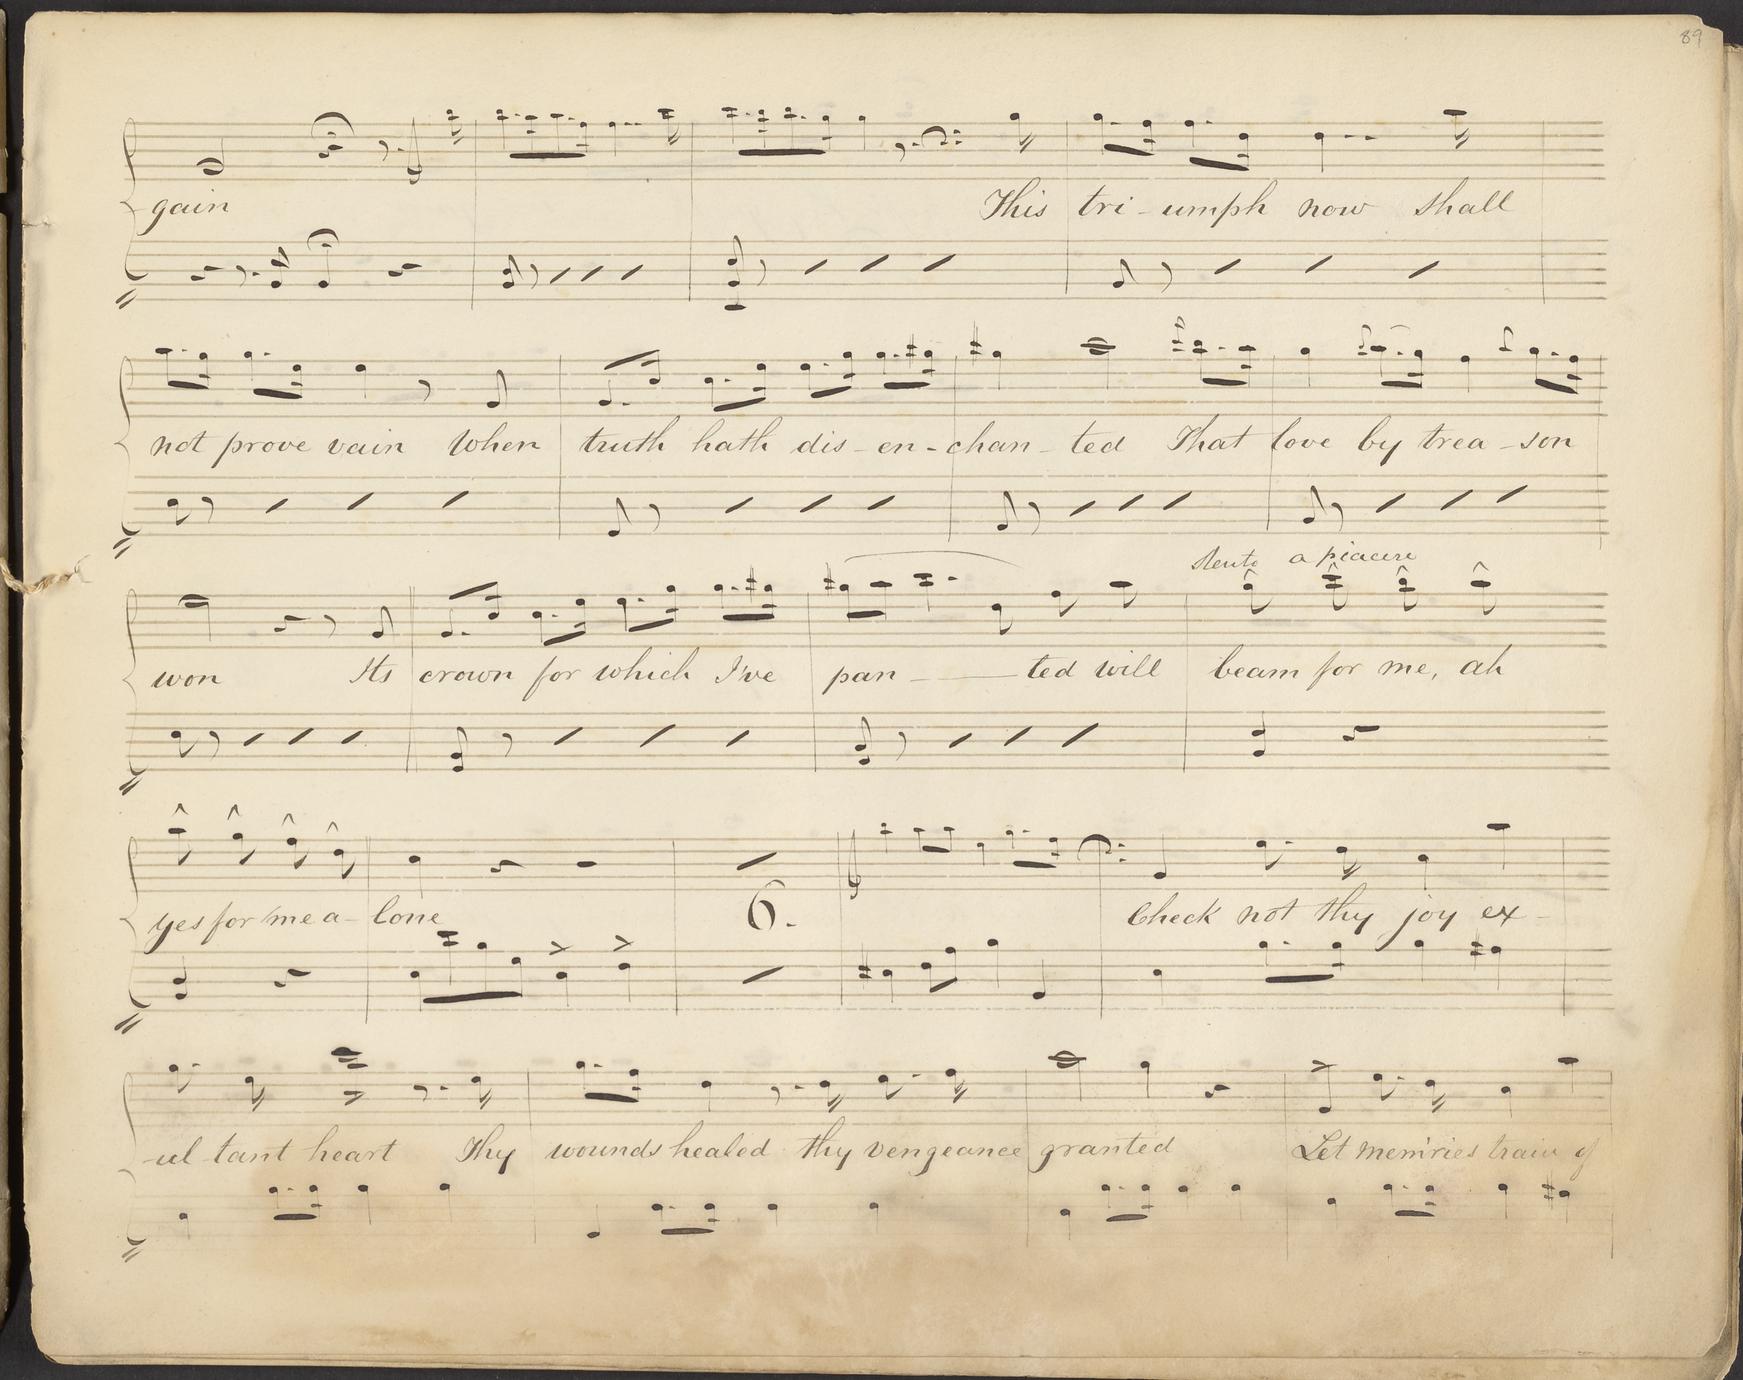 89
gain This tri - umph now shall
not prove vain When truth hath dis - en - chan - ted That love by trea - son
a piacere
won Its crown for which I've pan - ted will beam for me, ah
yes for me a - lone 6. Check not thy joy ex -
- ul tant heart Thy wounds healed thy vengeance granted Let mem'ries train of